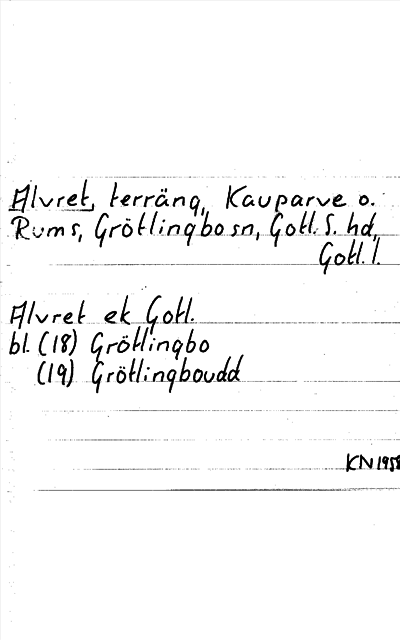 Alvret, terräng, Kauparve o.
Rums, Grötlingbo sn, Gotl. S. hd,
Gotl. l.
Alvret ek Gotl.
bl. (18) Grötlingbo
(19) Grötlingboudd
KN 1958